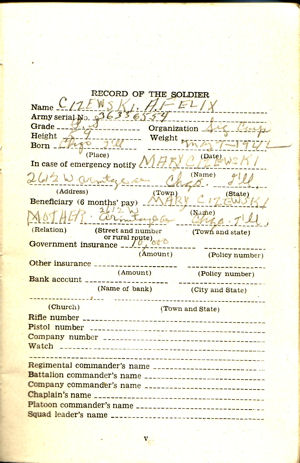 RECORD OF THE SOLDIER
Name CIZEWSKI, A FELIX
Army serial No. 36336554
Grade Pvt Organization Sig Corp
Height 5-9 Weight
Born Chgo Ill MAY 7-1922
(Place) (Date)
In case of emergency notify MARY CIZEWSKI
(Name)
2612 Chgo. Ill.
(Address) (Town) (State)
Beneficiary (6 months' pay) MARY CIZEWSKI
2612 W (Name)
MOTHER Chgo. Ill.
(Relation) (Street and number or rural route) (Town and state)
Government insurance 10,000
(Amount) (Policy number)
Other insurance
(Amount) (Policy number)
Bank account
(Name of bank) (City and State)
(Church) (Town and State)
Rifle number
Pistol number
Company number
Watch
Regimental commander's name
Battalion commander's name
Company commander's name
Chaplain's name
Platoon commander's name
Squad leader's name
v